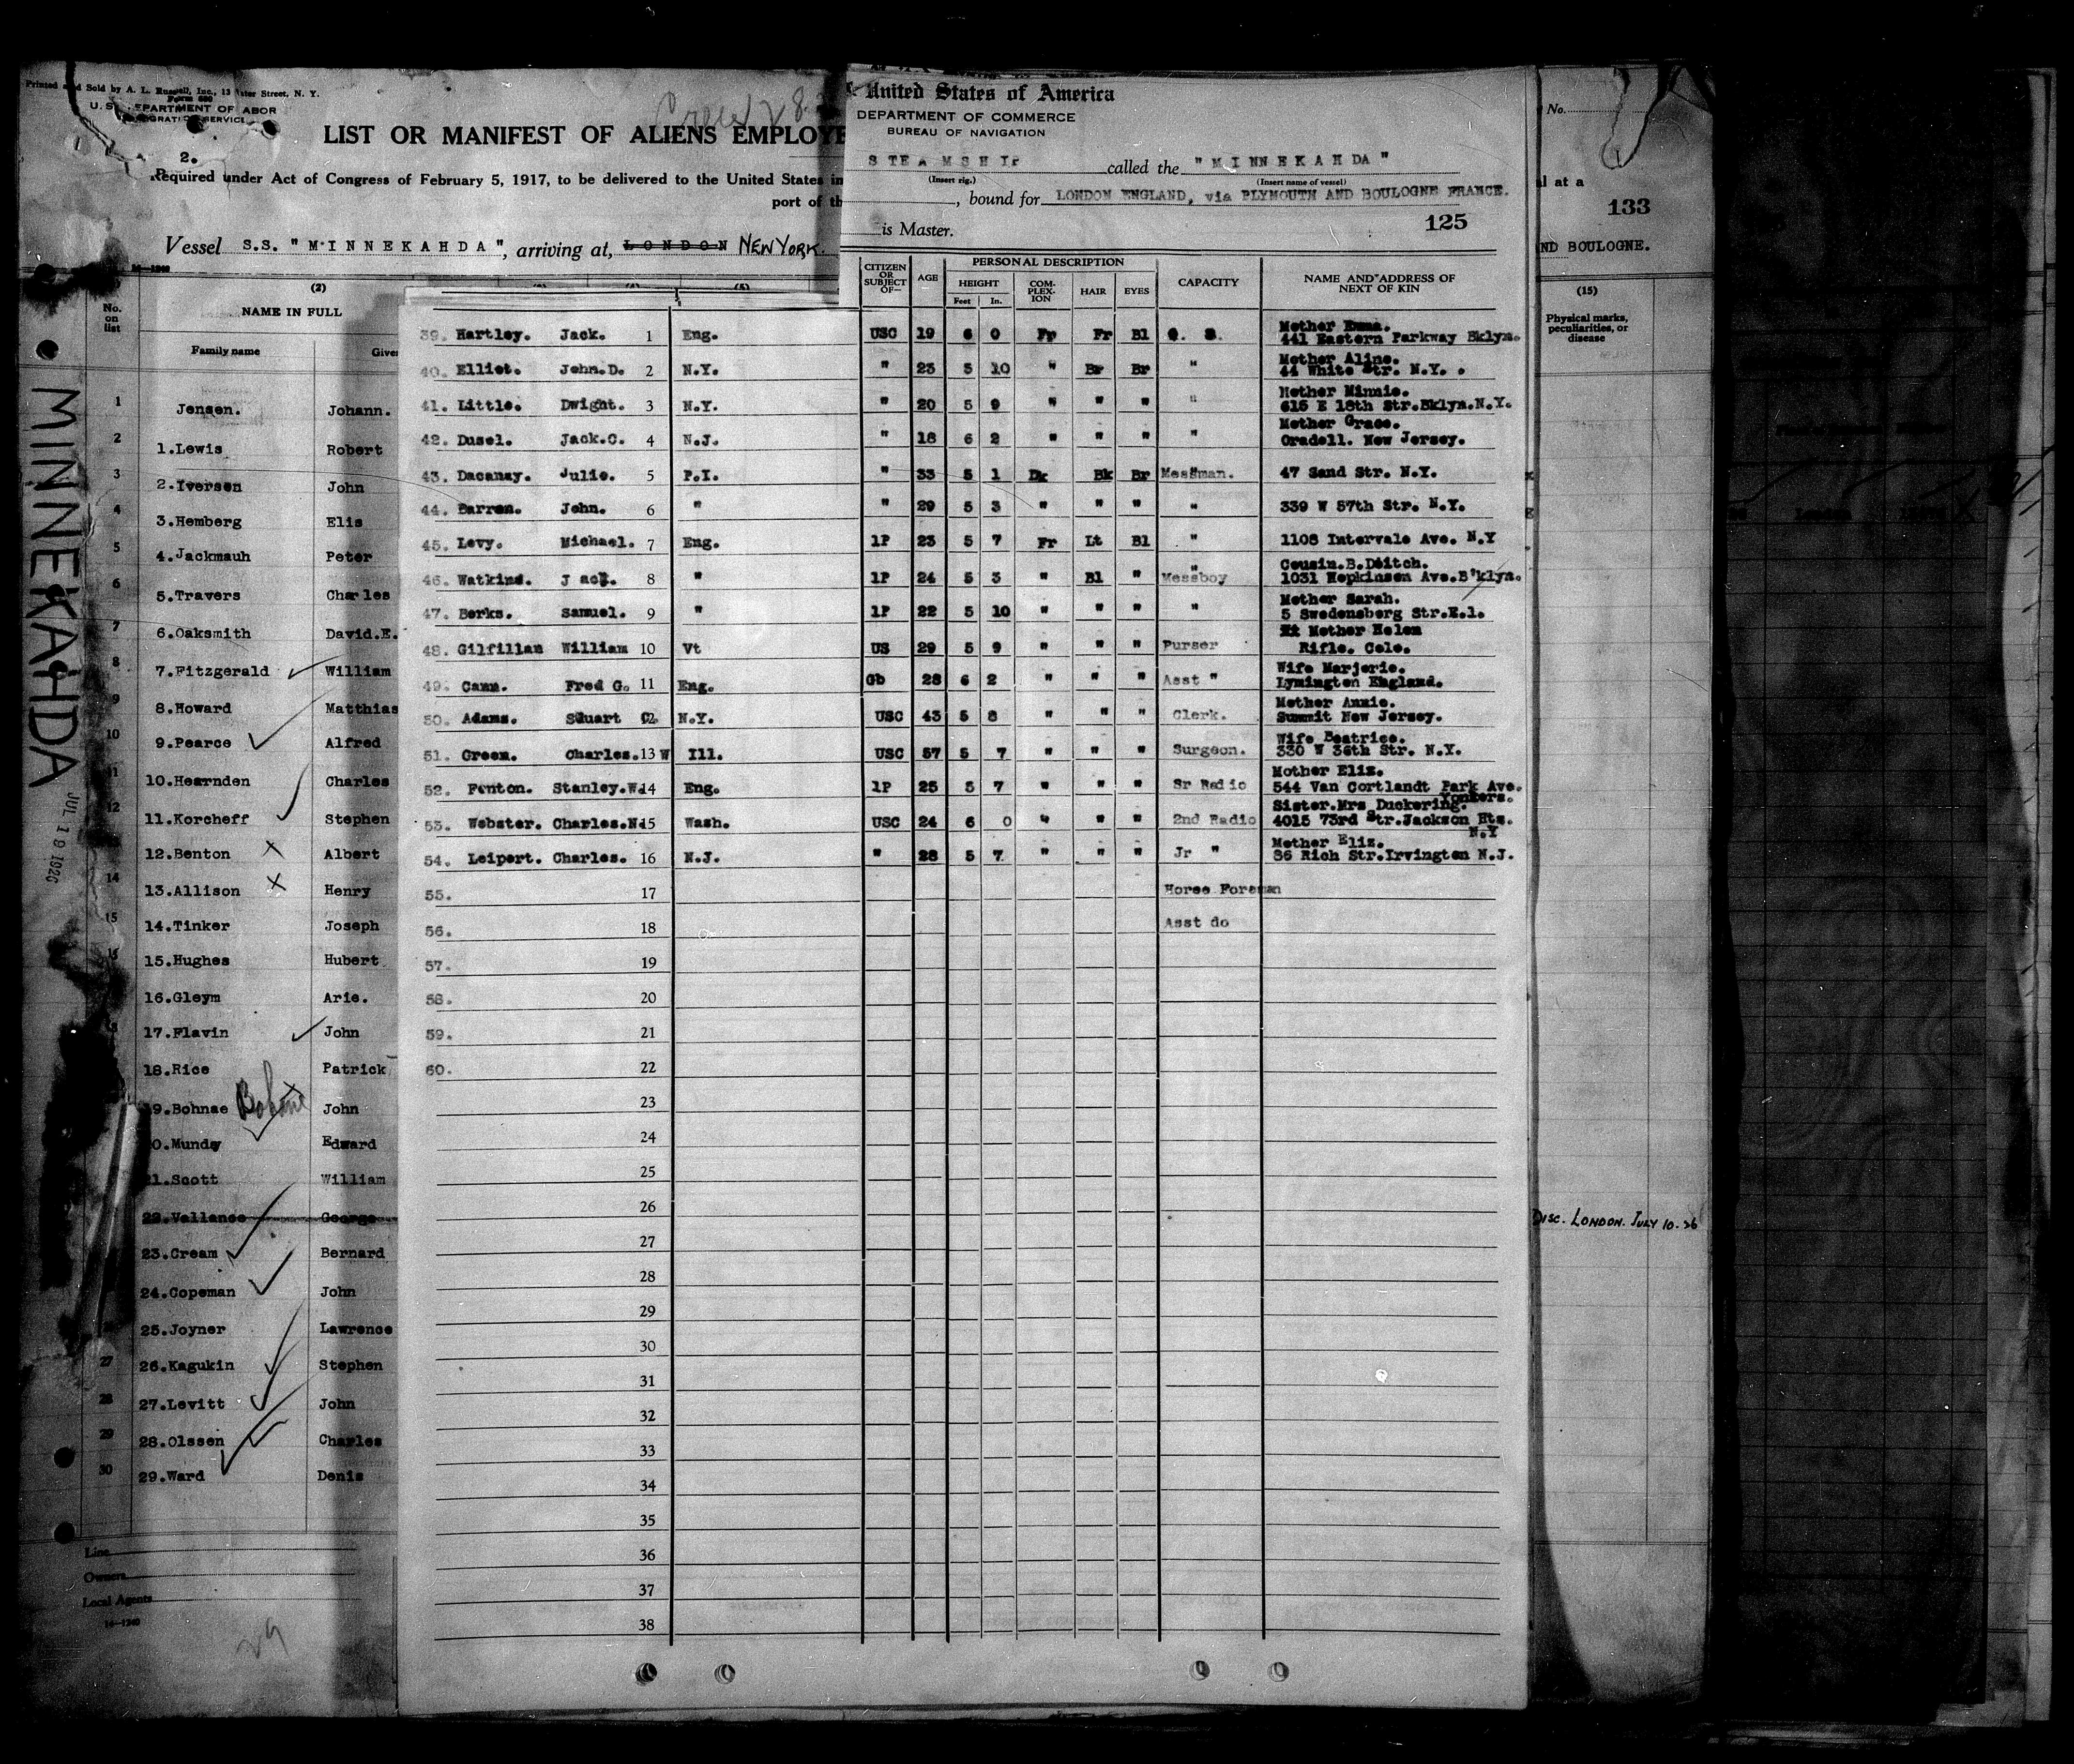 Printed and Sold by A. L. Russell, Inc., 13 Water Street, N. Y.
Form 680
U.S. DEPARTMENT OF LABOR
IMMIGRATION SERVICE
2.
LIST OR MANIFEST OF ALIENS EMPLOYE
Required under Act of Congress of February 5, 1917, to be delivered to the United States
port of th
Vessel S.S. "MINNEKAHDA", arriving at, LONDON NEW YORK.
United States of America
DEPARTMENT OF COMMERCE
BUREAU OF NAVIGATION
STEAMSHIP called the "MINNEKAHDA"
(Insert rig.) (Insert name of vessel)
, bound for LONDON ENGLAND, via PLYMOUTH AND BOULOGNE FRANCE.
is Master. 125
No.
al at a
133
ND BOULOGNE.
(15)
Physical marks, peculiarities, or disease
DISC. LONDON. JULY 10-26
MINNEKAHDA
JUL 19 1926
No. on list
(2)
NAME IN FULL
Family name Give
1 Jensen. Johann.
2 1.Lewis Robert
3 2.Iversen John
4 3.Hemberg Elis
5 4.Jackmauh Peter
6 5.Travers Charles
7 6.Oaksmith David.E.
8 7.Fitzgerald William
9 8.Howard Matthias
10 9.Pearce Alfred
11 10.Hearnden Charles
12 11.Korcheff Stephen
12.Benton Albert
14 13.Allison Henry
15 14.Tinker Joseph
15.Hughes Hubert
16.Gleym Arie.
17.Flavin John
18.Rice Patrick
9.Bohnae Bohane John
0.Mundy Edward
1.Scott William
22.Vallance George
23.Cream Bernard
24.Copeman John
25.Joyner Lawrence
27 26.Kagukin Stephen
28 27.Levitt John
29 28.Olssen Charles
30 29.Ward Denis
Line
Owners
Local Agents
14-1240
29
CITIZEN OR SUBJECT OF— AGE PERSONAL DESCRIPTION CAPACITY NAME AND ADDRESS OF NEXT OF KIN
HEIGHT COM-PLEX-ION HAIR EYES
Feet In.
39. Hartley. Jack. 1 Eng. USC 19 6 0 Fr Fr Bl Mother Emma. 441 Eastern Parkway Bklyn.
40. Elliot. John.D. 2 N.Y. " 23 5 10 " Br Br " Mother Aline. 44 White Str. N.Y.
41. Little. Dwight. 3 N.Y. " 20 5 9 " " " " Mother Minnie. 615 E 18th Str.Bklyn.N.Y.
42. Dusel. Jack.C. 4 N.J. " 18 6 2 " " " " Mother Grace. Oradell. New Jersey.
43. Dacanay. Julio. 5 P.I. " 33 5 1 Dk Bk Br Messman. 47 Sand Str. N.Y.
44. Barron. John. 6 " " 29 5 3 " " " " 339 W 57th Str. N.Y.
45. Levy. Michael. 7 Eng. 1P 23 5 7 Fr Lt Bl " 1108 Intervale Ave. N.Y
46. Watkins. Jack. 8 " 1P 24 5 3 " Bl " Messboy Cousin.B.Deitch. 1031 Hopkinson Ave.B'klyn.
47. Berks. Samuel. 9 " 1P 22 5 10 " " " " Mother Sarah. 5 Swedensberg Str.E.1.
48. Gilfillan William 10 Vt US 29 5 9 " " " Purser Mother Helen Rifle. Colo.
49. Cann. Fred G. 11 Eng. Gb 28 6 2 " " " Asst " Wife Marjorie. Lymington England.
50. Adams. Stuart C. 12 N.Y. USC 43 5 8 " " " Clerk. Mother Annie. Summit New Jersey.
51. Green. Charles. 13 W Ill. USC 57 5 7 " " " Surgeon. Wife Beatrice. 330 W 36th Str. N.Y.
52. Fenton. Stanley.W. 14 Eng. 1P 25 5 7 " " " Sr Radio Mother Eliz. 544 Van Cortlandt Park Ave. Yonkers.
53. Webster. Charles.N. 15 Wash. USC 24 6 0 " " " 2nd Radio Sister.Mrs Duckering. 4015 73rd Str.Jackson Hts. N.Y
54. Leipert. Charles. 16 N.J. " 28 5 7 " " " Jr " Mother Eliz. 36 Rich Str.Irvington N.J.
55. 17 Horse Foreman
56. 18 Asst do
57. 19
58. 20
59. 21
60. 22
23
24
25
26
27
28
29
30
31
32
33
34
35
36
37
38